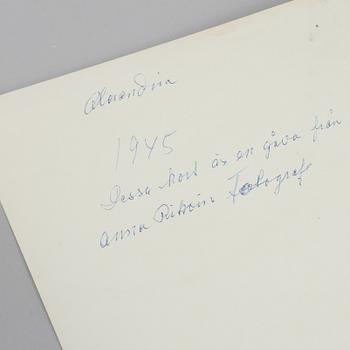 Alwandria
1945
Dessa kort är en gåva från
Anna Riwkin Fotograf